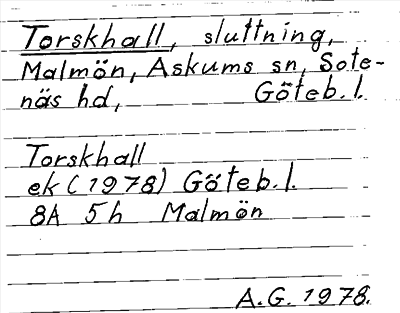 Torskhall, sluttning,
Malmön, Askums sn, Sote-
näs hd, Göteb. l.
Torskhall
ek (1978) Göteb. l.
8A 5h Malmön
A.G. 1978.